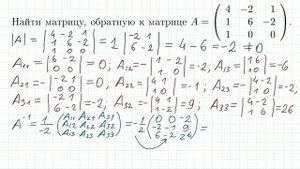 Найти матрицу, обратную к матрице A = ( 4 -2 1
1 6 -2
1 0 0 ).
|A| = | 4 -2 1
1 6 -2
1 0 0 | = 1 | -2 1
6 -2 | = 4-6 = -2 ≠0
A₁₁ = | 6 -2
0 0 | = 0; A₁₂ = -| 1 -2
1 0 | = -2; A₁₃ = | 1 6
1 0 | = -6;
A₂₁ = -| -2 1
0 0 | = 0; A₂₂ = | 4 1
1 0 | = -1; A₂₃ = -| 4 -2
1 0 | = -2;
A₃₁ = | -2 1
6 -2 | = -2; A₃₂ = -| 4 1
1 -2 | = 9; A₃₃ = | 4 -2
1 6 | = 26
A⁻¹ = 1/-2 ( A₁₁ A₂₁ A₃₁
A₁₂ A₂₂ A₃₂
A₁₃ A₂₃ A₃₃ ) = -1/2 ( 0 0 -2
-2 -1 9
6 -2 26 ) =